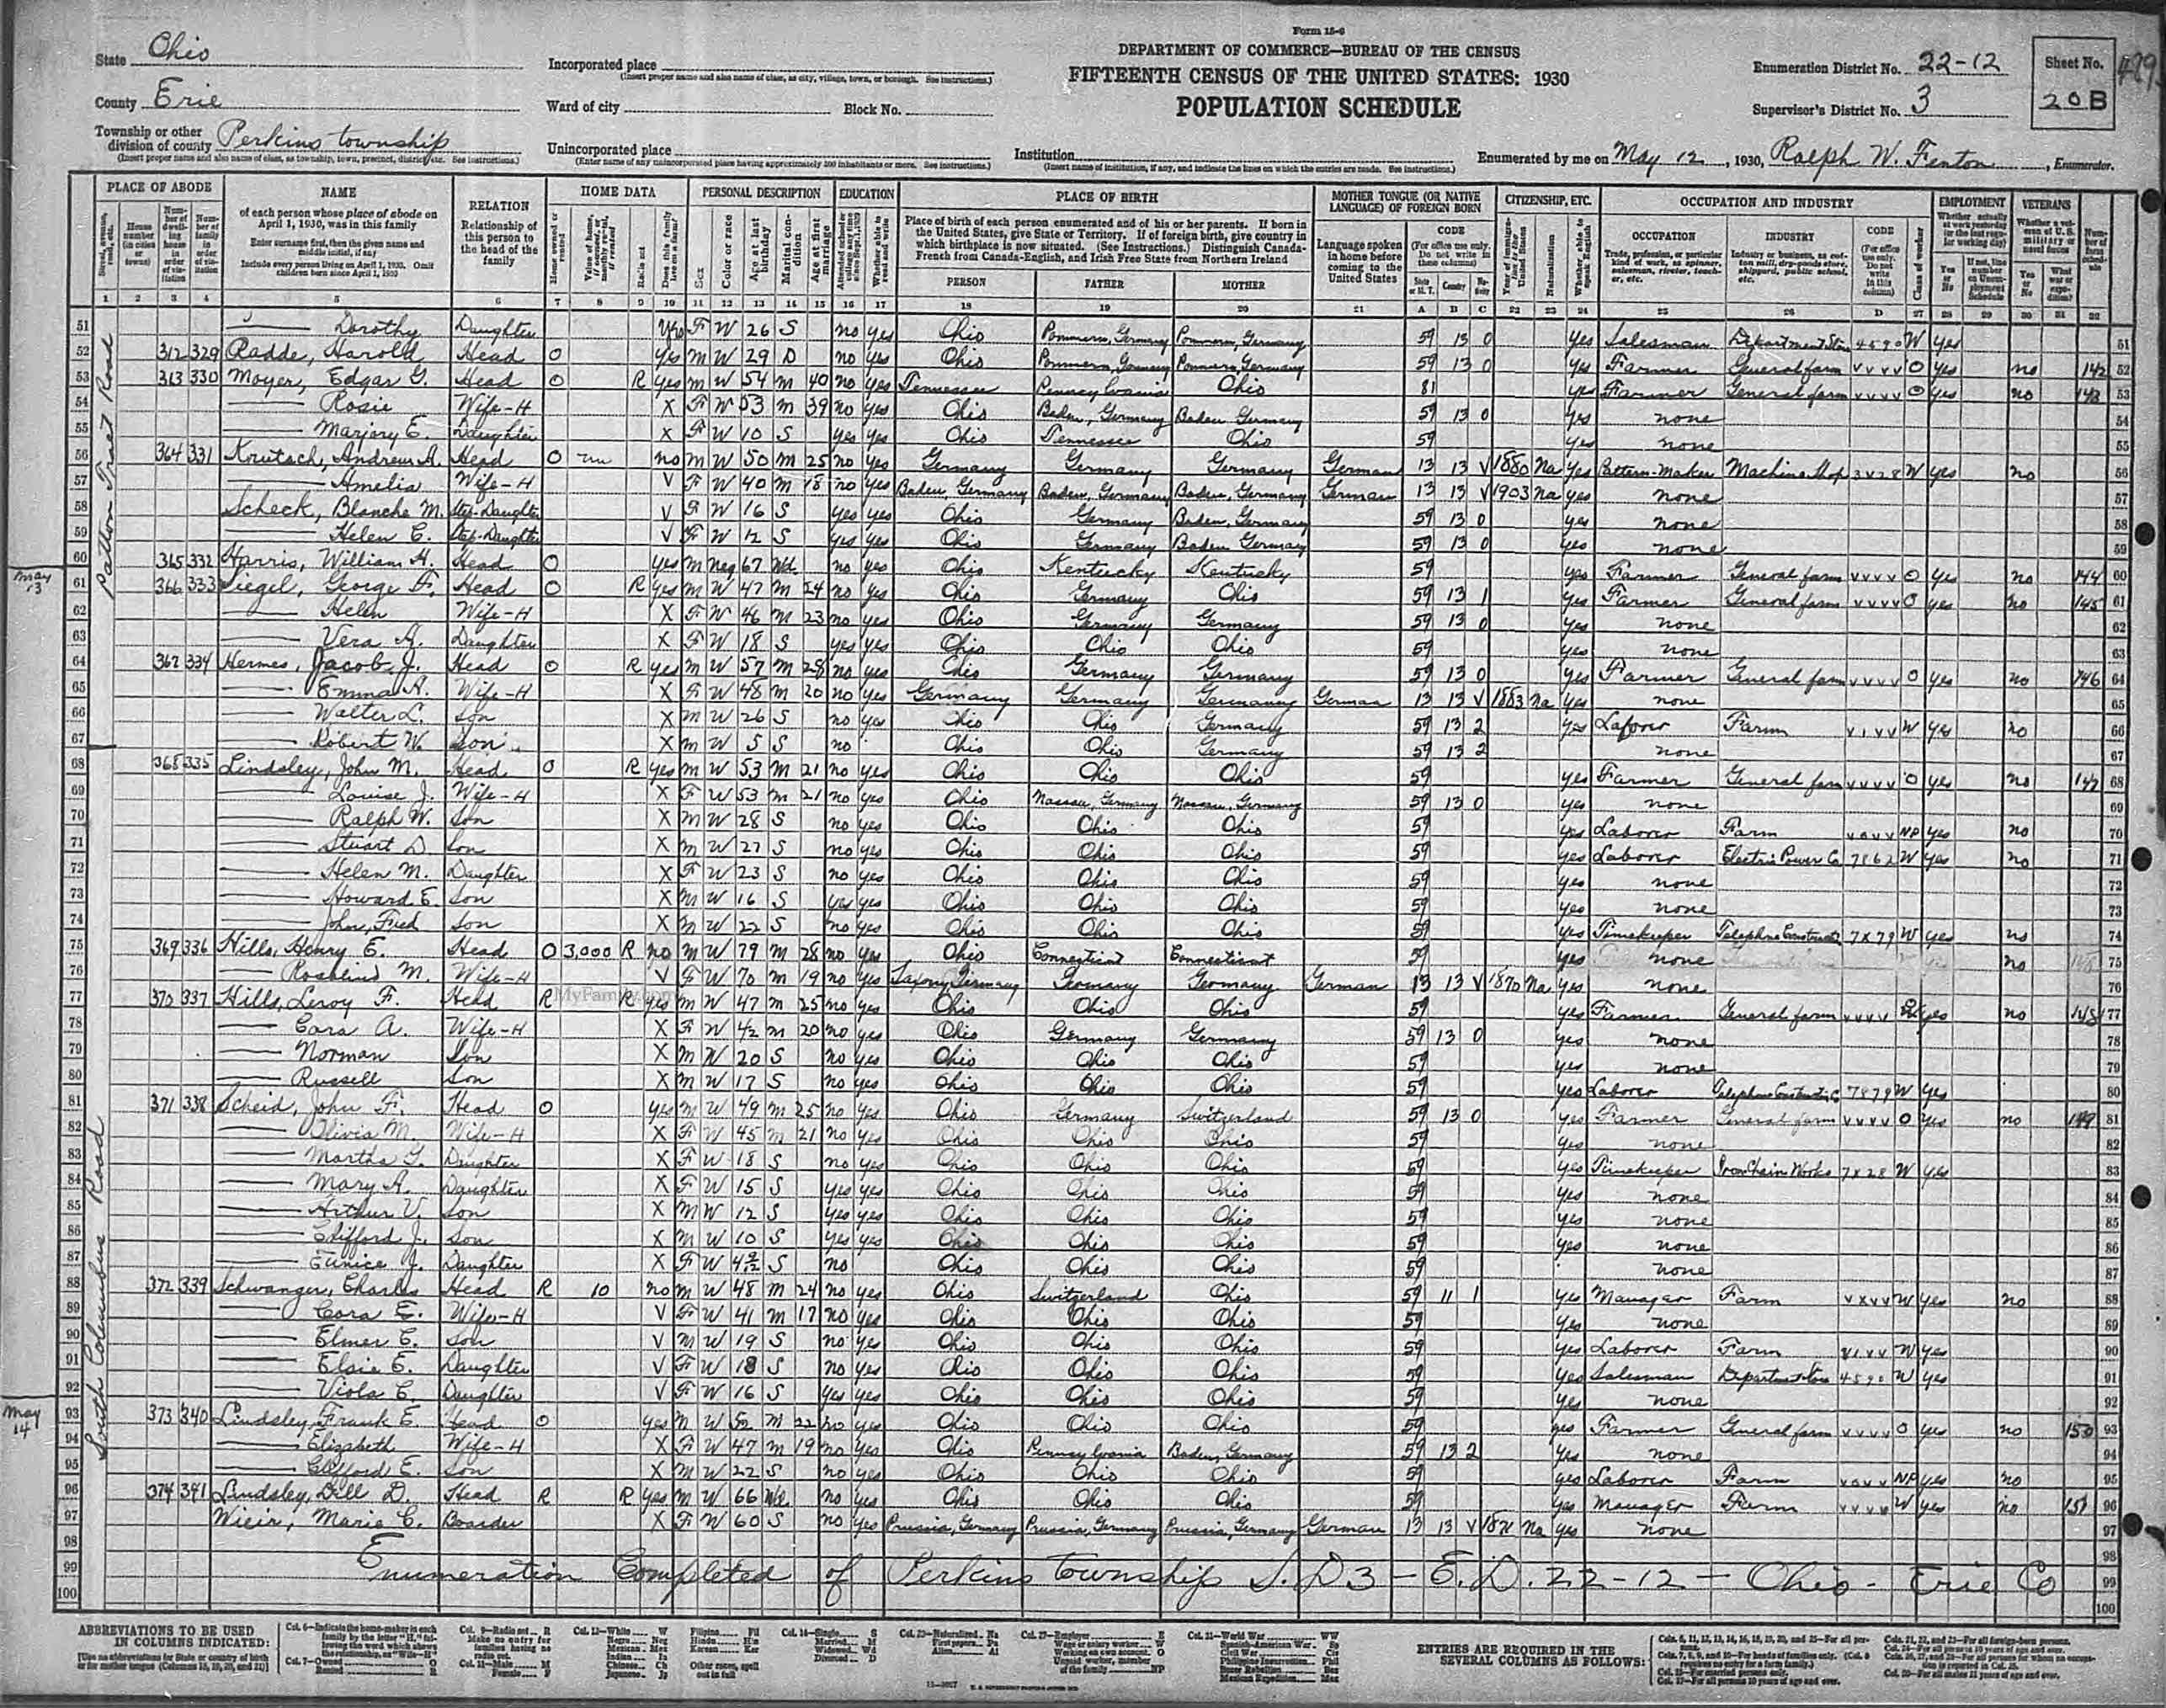 Form 15-6
DEPARTMENT OF COMMERCE—BUREAU OF THE CENSUS
FIFTEENTH CENSUS OF THE UNITED STATES: 1930
POPULATION SCHEDULE
State Ohio
County Erie
Township or other division of county Perkins township
(Insert proper name and also name of class, as township, town, precinct, district, etc. See instructions.)
Incorporated place
(Insert proper name and also name of class, as city, village, town, or borough. See instructions.)
Ward of city Block No.
Unincorporated place
(Enter name of any unincorporated place having approximately 500 inhabitants or more. See instructions.)
Institution
(Insert name of institution, if any, and indicate the lines on which the entries are made. See instructions.)
Enumeration District No. 22-12
Supervisor's District No. 3
Sheet No. 20 B
Enumerated by me on May 12, 1930, Ralph W. Fenton, Enumerator.
PLACE OF ABODE NAME RELATION HOME DATA PERSONAL DESCRIPTION EDUCATION PLACE OF BIRTH MOTHER TONGUE (OR NATIVE LANGUAGE) OF FOREIGN BORN CITIZENSHIP, ETC. OCCUPATION AND INDUSTRY EMPLOYMENT VETERANS
of each person whose place of abode on April 1, 1930, was in this family
Enter surname first, then the given name and middle initial, if any
Include every person living on April 1, 1930. Omit children born since April 1, 1930
Relationship of this person to the head of the family
Place of birth of each person enumerated and of his or her parents. If born in the United States, give State or Territory. If of foreign birth, give country in which birthplace is now situated. (See Instructions.) Distinguish Canada-French from Canada-English, and Irish Free State from Northern Ireland
PERSON FATHER MOTHER
Language spoken in home before coming to the United States
CODE
OCCUPATION INDUSTRY CODE
Patton Tract Road
51 Dorothy Daughter F W 26 S no yes Ohio Pommern, Germany Pommern, Germany 59 13 0 yes Salesman Department Store 4590 W yes
52 312 329 Radde, Harold Head O yes M W 29 D no yes Ohio Pommern, Germany Pommern, Germany 59 13 0 yes Farmer General farm VVVV O yes no 142
53 363 330 Moyer, Edgar G. Head O R yes M W 54 M 40 no yes Tennessee Pennsylvania Ohio 81 yes Farmer General farm VVVV O yes no 143
54 Rosie Wife-H X F W 53 M 39 no yes Ohio Baden, Germany Baden Germany 59 13 0 yes none
55 Marjory E. Daughter X F W 10 S yes yes Ohio Tennessee Ohio 59 yes none
56 364 331 Andrew A. Head O no M W 50 M 25 no yes Germany Germany Germany German 13 13 V 1880 Na yes Pattern-Maker Machine Shop W yes no
57 Amelia Wife-H V F W 40 M 18 no yes Baden, Germany Baden, Germany Baden, Germany German 13 13 V 1903 Na yes none
58 Scheck, Blanche M. Step-Daughter V F W 16 S yes yes Ohio Germany Baden, Germany 59 13 0 yes none
59 Helen C. Step-Daughter V F W 12 S yes yes Ohio Germany Baden Germany 59 13 0 yes none
60 365 332 Harris, William H. Head O yes M Neg 67 Wd no yes Ohio Kentucky Kentucky 59 yes Farmer General farm VVVV O yes no 144
May 13
61 366 333 Siegel, George F. Head O R yes M W 47 M 24 no yes Ohio Germany Ohio 59 13 1 yes Farmer General farm VVVV O yes no 145
62 Helen Wife-H X F W 46 M 23 no yes Ohio Germany Germany 59 13 0 yes none
63 Vera A. Daughter X F W 18 S yes yes Ohio Ohio Ohio 59 yes none
64 367 334 Hermes, Jacob J. Head O R yes M W 57 M 28 no yes Ohio Germany Germany 59 13 0 yes Farmer General farm VVVV O yes no 146
65 Emma A. Wife-H X F W 48 M 20 no yes Germany Germany Germany German 13 13 V 1883 Na yes none
66 Walter L. Son X M W 26 S no yes Ohio Ohio Germany 59 13 2 yes Laborer Farm V1VV W yes no
67 Robert W. Son X M W 5 S no Ohio Ohio Germany 59 13 2 none
68 368 335 Lindsley, John M. Head O R yes M W 53 M 21 no yes Ohio Ohio Ohio 59 yes Farmer General farm VVVV O yes no 147
69 Louise J. Wife-H X F W 53 M 21 no yes Ohio Nassau, Germany Nassau, Germany 59 13 0 yes none
70 Ralph W. Son X M W 28 S no yes Ohio Ohio Ohio 59 yes Laborer Farm NP yes no
71 Stuart D. Son X M W 27 S no yes Ohio Ohio Ohio 59 yes Laborer Electric Power Co 7862 W yes no
72 Helen M. Daughter X F W 23 S no yes Ohio Ohio Ohio 59 yes none
73 Howard E. Son X M W 16 S yes yes Ohio Ohio Ohio 59 yes none
74 John, Fred Son X M W 22 S no yes Ohio Ohio Ohio 59 yes Timekeeper 7X79 W yes no
75 369 336 Hills, Henry E. Head O 3,000 R no M W 79 M 28 no yes Ohio Connecticut Connecticut 59 yes none no
76 Rosalind M. Wife-H V F W 70 M 19 no yes Saxony, Germany Germany Germany German 13 13 V 1870 Na yes none
77 370 337 Hills, Leroy F. Head R R yes M W 47 M 25 no yes Ohio Ohio Ohio 59 yes Farmer General farm VVVV yes no 148
MyFamily.com
78 Cora A. Wife-H X F W 42 M 20 no yes Ohio Germany Germany 59 13 0 yes none
79 Norman Son X M W 20 S no yes Ohio Ohio Ohio 59 yes none
80 Russell Son X M W 17 S no yes Ohio Ohio Ohio 59 yes Laborer 7879 W yes
South Columbus Road
81 371 338 Scheid, John F. Head O yes M W 49 M 25 no yes Ohio Germany Switzerland 59 13 0 yes Farmer General farm VVVV O yes no 149
82 Olivia M. Wife-H X F W 45 M 21 no yes Ohio Ohio Ohio 59 yes none
83 Martha Daughter X F W 18 S no yes Ohio Ohio Ohio 59 yes Timekeeper Iron Chain Works 7X28 W yes
84 Mary A. Daughter X F W 15 S yes yes Ohio Ohio Ohio 59 yes none
85 Arthur V. Son X M W 12 S yes yes Ohio Ohio Ohio 59 yes none
86 Clifford J. Son X M W 10 S yes yes Ohio Ohio Ohio 59 yes none
87 Eunice J. Daughter X F W S no Ohio Ohio Ohio 59 none
88 372 339 Schwanger, Charles Head R 10 no M W 48 M 24 no yes Ohio Switzerland Ohio 59 11 1 yes Manager Farm VXVV W yes no
89 Cora E. Wife-H V F W 41 M 17 no yes Ohio Ohio Ohio 59 yes none
90 Elmer C. Son V M W 19 S no yes Ohio Ohio Ohio 59 yes Laborer Farm V1VV W yes
91 Elsie E. Daughter V F W 18 S no yes Ohio Ohio Ohio 59 yes Salesman Department Store 4590 W yes
92 Viola C. Daughter V F W 16 S yes yes Ohio Ohio Ohio 59 yes none
May 14
93 373 340 Lindsley, Frank E. Head O yes M W 52 M 22 no yes Ohio Ohio Ohio 59 yes Farmer General farm VVVV O yes no 150
94 Elizabeth Wife-H X F W 47 M 19 no yes Ohio Pennsylvania Baden, Germany 59 13 2 yes none
95 Clifford E. Son X M W 22 S no yes Ohio Ohio Ohio 59 yes Laborer Farm NP yes no
96 374 341 Lindsley, Dell D. Head R R yes M W 66 Wd no yes Ohio Ohio Ohio 59 yes Manager Farm W yes no 151
97 Wieir, Marie C. Boarder X F W 60 S no yes Prussia, Germany Prussia, Germany Prussia, Germany German 13 13 V 1871 Na yes none
98
99 Enumeration Completed of Perkins township S.D 3 - E.D. 22-12 - Ohio - Erie Co
100
ABBREVIATIONS TO BE USED IN COLUMNS INDICATED:
ENTRIES ARE REQUIRED IN THE SEVERAL COLUMNS AS FOLLOWS: